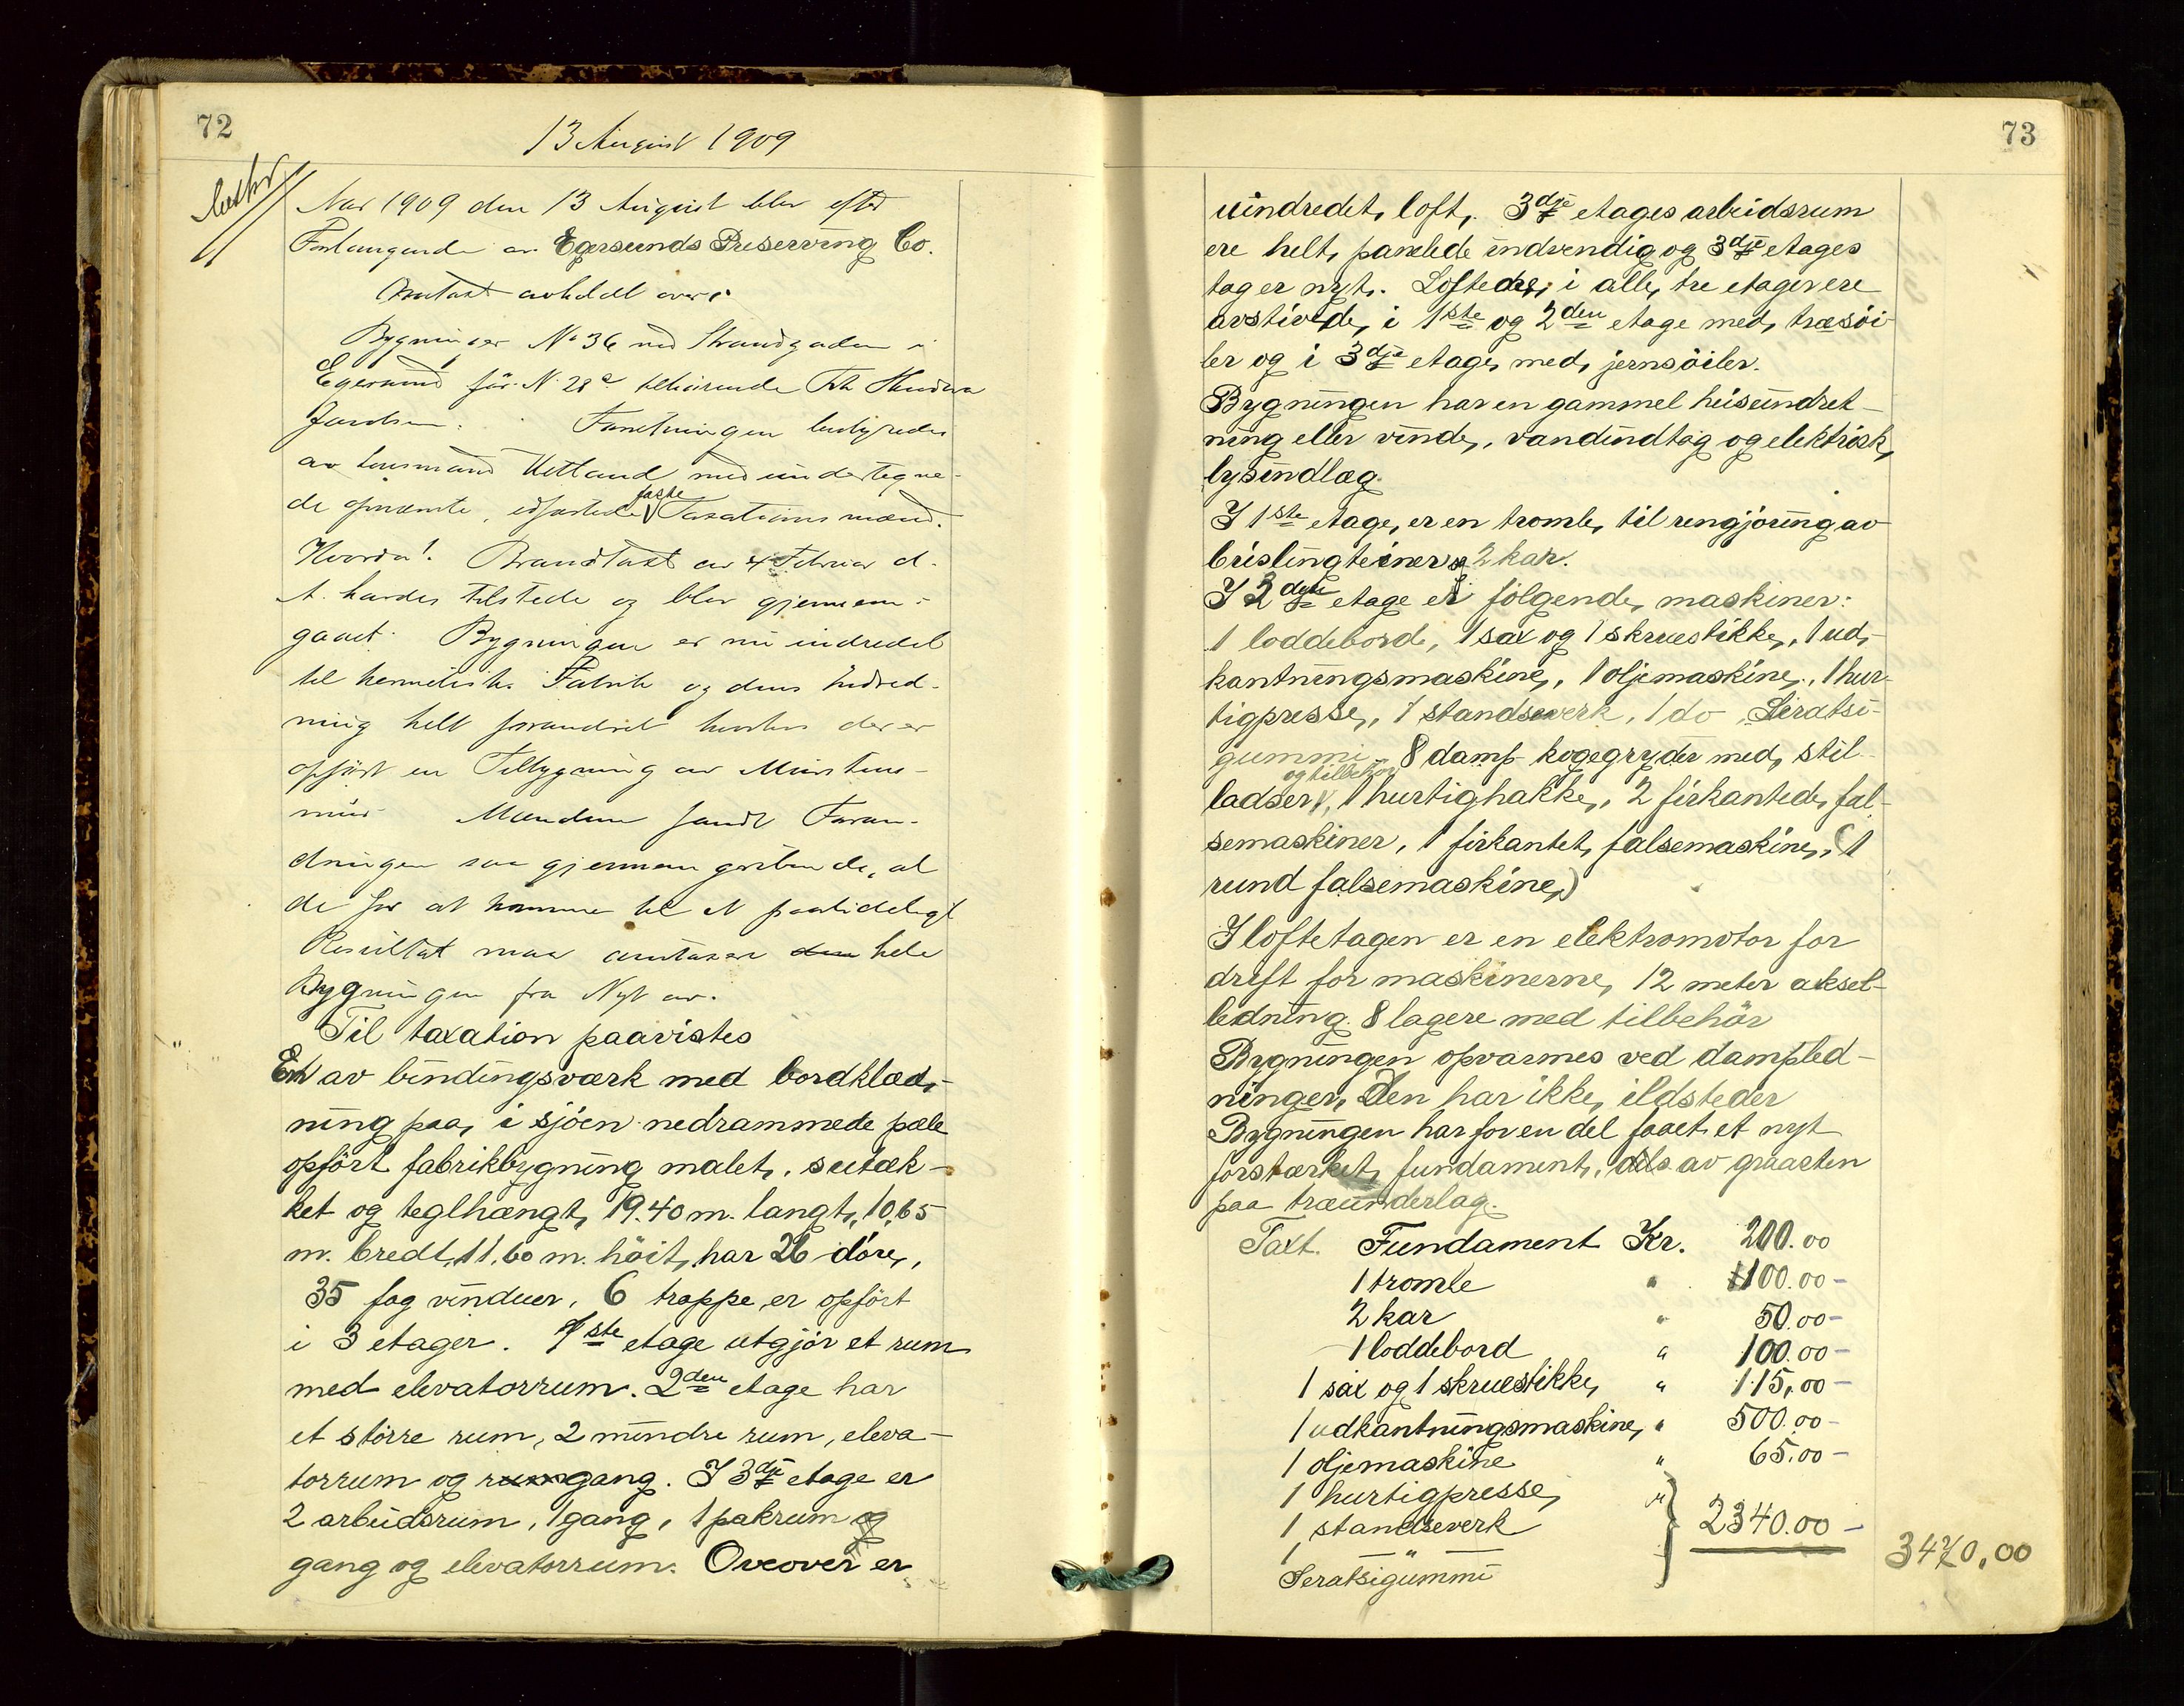 72
13 August 1909
Aar 1909 den 13 August blev efter
Forlangende av Egersunds Preserving Co.
Omtaxt avholdt over:
Bygninger No 36 ved Strandgaden i
Egersund før N. 28c tilhørende
Jacobsen. Forretningen bestyredes
av Lensmand Hetland med undertegne-
de opnævnte, edfæstede faste Taxationsmænd.
Hvorda! Brandtaxt av 4 Februar d.
A. havdes tilstede og blev gjennem-
gaaet. Bygningen er nu indredet
til hermetisk Fabrik og dens Indred-
ning helt forandret hvorhos der er
opført en Tilbygning av Murstens-
mur Mændene fandt Foran-
dringen saa gjennemgribende, at
de for at komme til et paalideligt
Resultat maa omtaxere den hele
Bygningen fra Nyt av.
Til taxation paavistes
En av bindingsværk med bordklæd-
ning paa, i sjöen nedrammede pæle
opfört fabrikbygning malet, sutæk-
ket og teglhængt, 19.40 m. langt, 10,65
m. bredt, 11.60 m. höit, har 26 döre,
35 fag vinduer, 6 trappe, er opfört
i 3 etager. 1ste etage utgjör et rum
med elevatorrum. 2den etage har
et större rum, 2 mindre rum, eleva-
torrum og rum gang. I 3dje etage er
2 arbeidsrum, 1 gang, 1 pakrum og
gang og elevatorrum. Oveover er
73
uindredet loft. 3dje etages arbeidsrum
ere helt panelede indvendig og 3dje etages
tag er nyt. Lofterne i alle tre etager ere
avstivede, i 1ste og 2den etage med træsöi-
ler og i 3dje etage med jernsöiler.
Bygningen har en gammel heiseindret-
ning eller vinde, vandindtag og elektrisk
lysindlæg.
I 1ste etage er en tromle til rengjöring av
brislingteiner og 2 kar.
I 3dje etage er fölgende maskiner:
1 loddebord, 1 sax og 1 skruestikke, 1 ud-
kantningsmaskine, 1 oljemaskine, 1 hur-
tigpresse, 1 standseverk, 1 do Seratsi-
gummi 8 damp kogegryder med stil-
ladser og tilbehör, 1 hurtighakke, 2 firkantede fal-
semaskiner, 1 firkantet falsemaskine, (1
rund falsemaskine)
I loftetagen er en elektromotor for
drift for maskinerne, 12 meter aksel-
ledning. 8 lagere med tilbehör
Bygningen opvarmes ved dampled-
ninger. Den har ikke ildsteder
Bygningen har for en del faaet et nyt
forstærket fundament, dels av graasten
paa træunderlag.
Taxt. Fundament Kr. 200.00
1 tromle " 1100.00-
2 kar " 50.00-
1 loddebord " 100.00-
1 sax og 1 skruestikke " 115.00-
1 udkantningsmaskine " 500.00-
1 oljemaskine " 65.00-
1 hurtigpresse "
1 standseverk } 2340.00-
1 — " — 3470,00
Seratsigummi